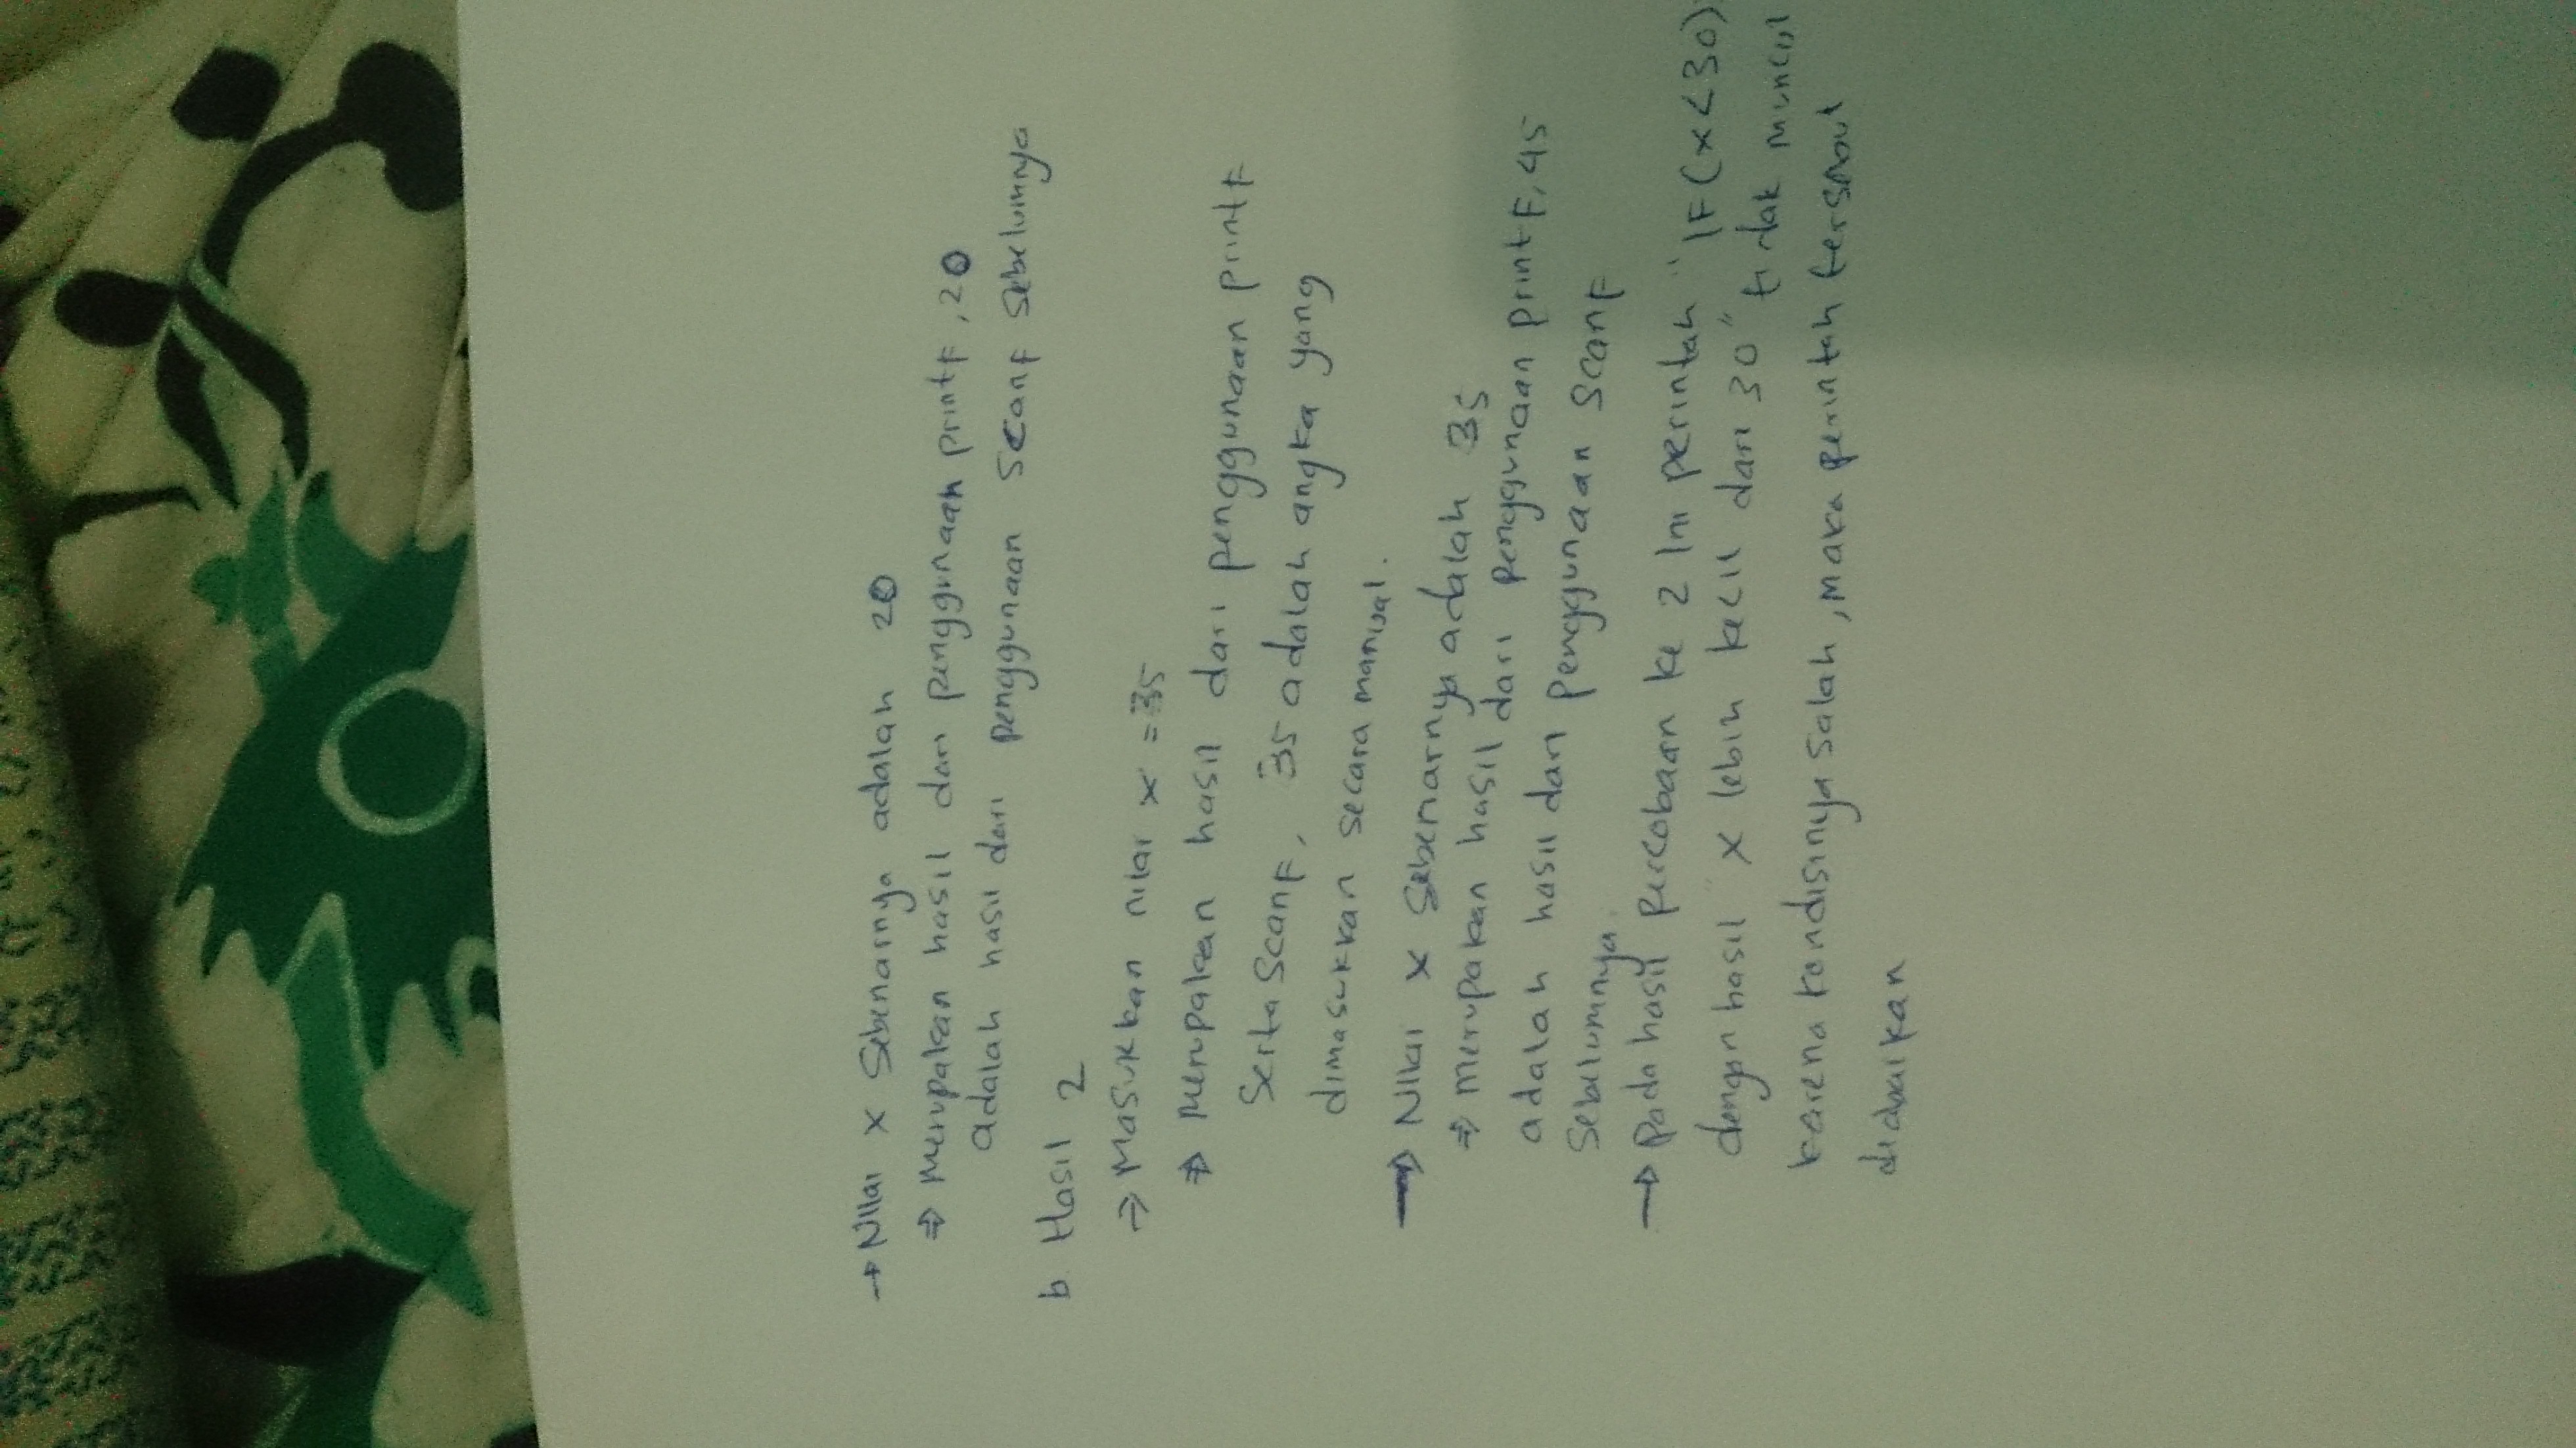 → Nilai x Sebenarnya adalah 20
⇒ Merupakan hasil dari penggunaan printf, 20
adalah hasil dari penggunaan Scanf Sebelumnya
b. Hasil 2
⇒ Masukkan nilai x = 35
⇒ Merupakan hasil dari penggunaan printf
Serta Scanf, 35 adalah angka yang
dimasukkan secara manual.
→ Nilai x Sebenarnya adalah 35
⇒ merupakan hasil dari penggunaan printf, 45
adalah hasil dari penggunaan Scanf
Sebelumnya.
→ Pada hasil Percobaan ke 2 Ini perintah "IF (x<30)
dengan hasil x lebih kecil dari 30" tidak muncul
karena kondisinya Salah, maka perintah tersebut
diabaikan